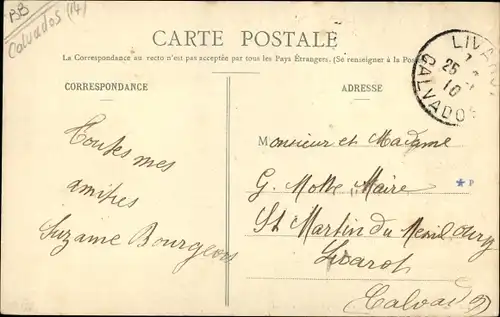 BB
Calvados (14)
CARTE POSTALE
La Correspondance au recto n'est pas acceptée par tous les Pays Étrangers, (Se renseigner à la Poste
CORRESPONDANCE
ADRESSE
LIVAROT
25
10
CALVADOS
Toutes mes
amitiés
Suzanne Bourgeois
Monsieur et Madame
G. Motte Maire
* P
St Martin du Mesnil Oury
Livarot
Calvados